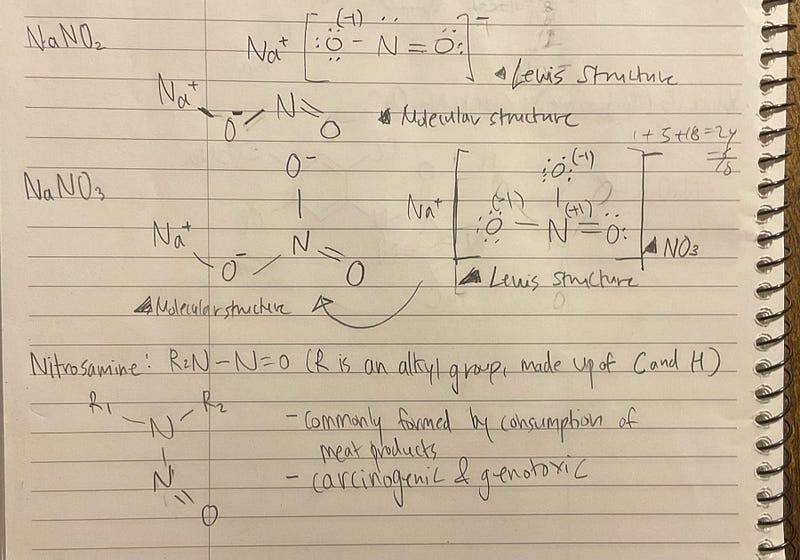 NaNO₂
Na⁺ [:Ö(-1) – N̈ = Ö:]⁻
▲ Lewis Structure
Na⁺ O⁻ N O
▲ Molecular structure
1 + 5 + 18 = 24
NaNO₃
O⁻
Na⁺ O⁻ N O
▲ Molecular structure
:Ö: (-1)
Na⁺ [:Ö: (-1) – N (+1) = Ö:]⁻
▲ NO₃
▲ Lewis structure
Nitrosamine: R₂N–N=O (R is an alkyl group, made up of C and H)
R₁ R₂
N
N
O
- commonly formed by consumption of
meat products
- carcinogenic & genotoxic